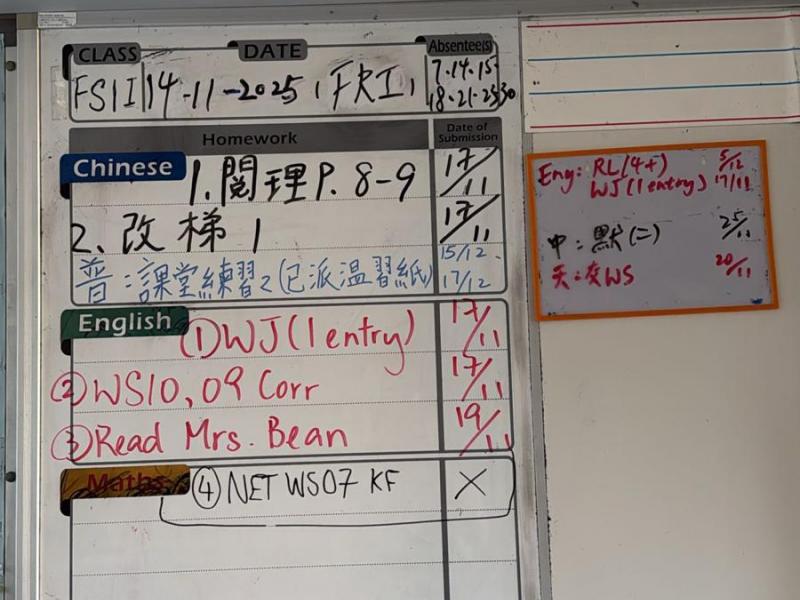 CLASS DATE Absentee(s)
FS1I 14-11-2025 (FRI) 7.14.15.
18.21.25.30
Homework Date of Submission
Chinese 1. 閱理 P. 8-9 17/11
2. 改梯 1 17/11
普:課堂練習2 (已派温習紙) 15/12. 17/12
English ① WJ (1 entry) 17/11
② WS10, 09 Corr 17/11
③ Read Mrs. Bean 19/11
Maths ④ NET WS07 KF ×
Eng: RL (4+) 5/12
WJ (1 entry) 17/11
中:默(二) 25/11
天:交WS 20/11